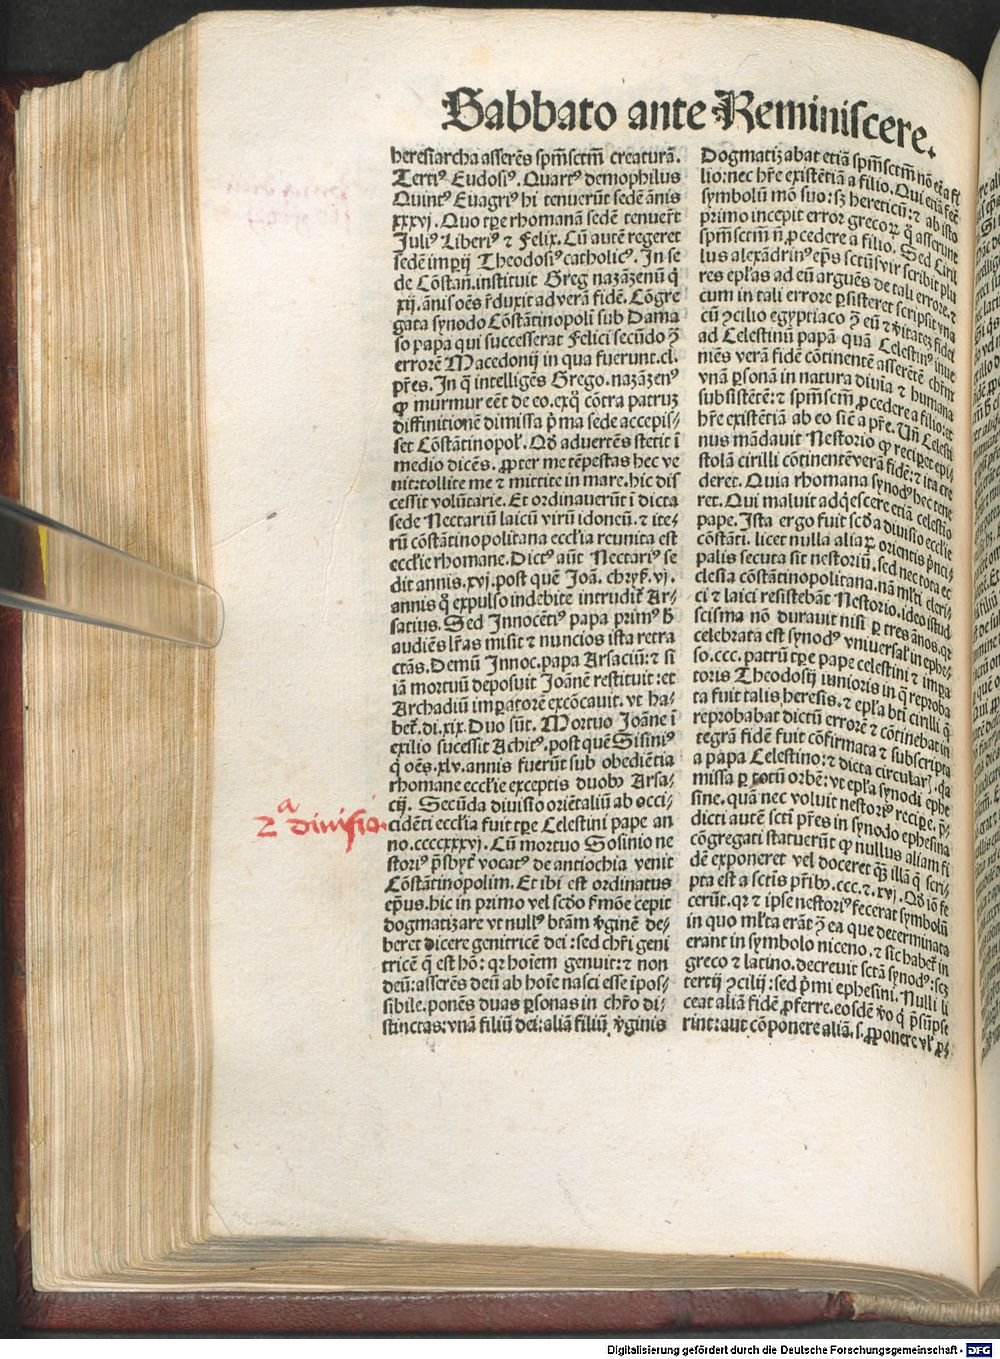 Sabbato ante Reminiscere.
heresiarcha asserẽs spm̃sctm̃ creaturã.
Tertiꝰ Eudosiꝰ. Quartꝰ demophilus
Quintꝰ Euagriꝰ hi tenuerũt sedẽ ãnis
xxxvj. Quo tꝑe rhomanã sedẽ tenuer̃t
Juliꝰ Liberiꝰ ⁊ Felix. Cũ autẽ regeret
sedẽ imꝑij Theodosiꝰ catholicꝰ. In se
de Cõstañ. instituit Greg nazãzenũ q̃
xij. ãnis oẽs r̃duxit ad verã fidẽ. Cõgre
gata synodo Cõstãtinopoli sub Dama
so papa qui successerat Felici secũdo ꝯ̃
errorẽ Macedonij in qua fuerunt .cl.
pr̃es. In q̃ intelligẽs Grego. nazãzenꝰ
ꝙ murmur eẽt de eo. exq̊ cõtra patruꝫ
diffinitionẽ dimissa p̃ma sede accepis⸗
set Cõstãtinopoł. Qd̃ aduertẽs stetit ĩ
medio dicẽs. ꝓpter me tẽpestas hec ve
nit: tollite me ⁊ mittite in mare. hic dis
cessit volũtarie. Et ordinauerũt ĩ dicta
sede Nectariũ laicũ virũ idoneũ. ⁊ ite⸗
rũ cõstãtinopolitana ecclĩa reunita est
ecclĩe rhomane. Dictꝰ aũt Nectariꝰ se
dit annis. xvj. post quẽ Joã. chryß. vj.
annis q̊ expulso indebite intrudit̃ Ar⸗
satius. Sed Innocẽtiꝰ papa primꝰ h̃
audiẽs lr̃as misit ⁊ nuncios ista retra
ctãs. Demũ Innoc. papa Arsaciũ: ⁊ si
iã mortuũ deposuit Joãnẽ restituit: et
Archadiũ imꝑatorẽ excõcauit. vt ha⸗
bet̃. di. xix. Duo sũt. Mortuo Joãne ĩ
exilio sucessit Achitꝰ. post quẽ Sisiniꝰ
q̊ oẽs. xlv. annis fuerũt sub obediẽtia
rhomane ecclĩe exceptis duobꝰ Arsa⸗
cij. Secũda diuisio oriẽtaliũ ab occi⸗
2ᵃ diuisio.
cidẽti ecclĩa fuit tꝑe Celestini pape an
no. ccccxxxvj. Cũ mortuo Sosinio ne
storiꝰ p̃sbyt̃ vocatꝰ de antiochia venit
Cõstãtinopolim. Et ibi est ordinatus
ep̃us. hic in primo vel scd̃o ßmõe cepit
dogmatizare vt nullꝰ btãm ṽginẽ de⸗
beret dicere genitricẽ dei: sed chr̃i geni
tricẽ q̃ est hõ: qꝛ hoĩem genuit: ⁊ non
deũ: asserẽs deũ ab hoĩe nasci esse ĩpos⸗
sibile. ponẽs duas ꝑsonas in chr̃o di⸗
stinctas: vnã filiũ dei: aliã filiũ ṽginis
Dogmatizabat etiã spm̃sctm̃ nõ eẽ a fi
lio: nec hr̃e existẽtiã a filio. Qui etiã fec̃
symbolũ mõ suo: sꝫ hereticũ: ⁊ ab isto
primo incepit error grecoꝝ q̃ asserunt
spm̃sctm̃ ñ ꝓcedere a filio. Sed Ciril
lus alexãdrinꝰ ep̃s sctũs vir scribit plu
res epl̃as ad eũ arguẽs de tali errore. ⁊
cum in tali errore ꝑsisteret scripsit vna
cũ ꝯcilio egyptiaco ꝯ̃ eũ ⁊ ṽitateꝫ fidei
ad Celestinũ papã quã Celestinꝰ inue
niẽs verã fidẽ cõtinentẽ asserẽtẽ chr̃m
vnã ꝑsonã in natura diuĩa ⁊ humana
subsistẽtẽ: ⁊ spm̃sctm̃ ꝓcedere a filio: et
hr̃e existẽtiã ab eo siẽ a pr̃e. Vñ Celesti
nus mãdauit Nestorio ꝙ reciꝑet epi⸗
stolã cirilli cõtinentẽ verã fidẽ: ⁊ ita cre
deret. Quia rhomana synodꝰ hec tene
ret. Qui maluit adq̃escere etiã celestio
pape. Ista ergo fuit scd̃a diuisio ecclĩe
cõstãti. licet nulla aliaꝝ orientis p̃nci⸗
palis secuta sit nestoriũ. sed nec tota ec
clesia cõstãtinopolitana. nã ml̃ti cleri⸗
ci ⁊ laici resistebãt Nestorio. ideo istud
scisma nõ durauit nisi ꝑ tres ãnos. qꝛ
celebrata est synodꝰ vniuersal̃ in ephe⸗
so. ccc. patrũ tꝑe pape celestini ⁊ imꝑa
toris Theodosij iunioris in q̃ reproba
ta fuit talis heresis. ⁊ epl̃a bt̃i cirilli q̃
reprobabat dictũ errorẽ ⁊ cõtinebat in
tegrã fidẽ fuit cõfirmata ⁊ subscripta
a papa Celestino: ⁊ dicta circular̃. q̃a
missa ꝑ totũ orbẽ: vt epl̃a synodi ephe
sine. quã nec voluit nestoriꝰ reciꝑe. p̃⸗
dicti autẽ scti pr̃es in synodo ephesina
cõgregati statuerũt ꝙ nullus aliam fi
dẽ exponeret vel doceret q̃ꝫ illã q̃ scri⸗
pta est a sctis pr̃ibꝰ. ccc. ⁊. xvj. Qd̃ iõ fe
cerũt. qꝛ ⁊ ipse nestoriꝰ fecerat symbolũ
in quo ml̃ta erãt ꝯ̃ ea que determinata
erant in symbolo niceno. ⁊ sic habet̃ in
greco ⁊ latino. decreuit sctã synodꝰ: scꝫ
tertij ꝯcilij: sed p̃mi ephesini. Nulli li
ceat aliã fidẽ ꝓferre. eosdẽ vo q̃ p̃sũpse
rint: aut cõponere aliã. s. ꝓponere vl̃ ꝓ⸗
Digitalisierung gefördert durch die Deutsche Forschungsgemeinschaft - DFG